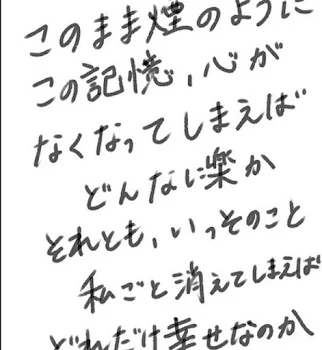 このまま煙のように
この記憶、心が
なくなってしまえば
どんなに楽か
それとも、いっそのこと
私ごと消えてしまえば
どれだけ幸せなのか